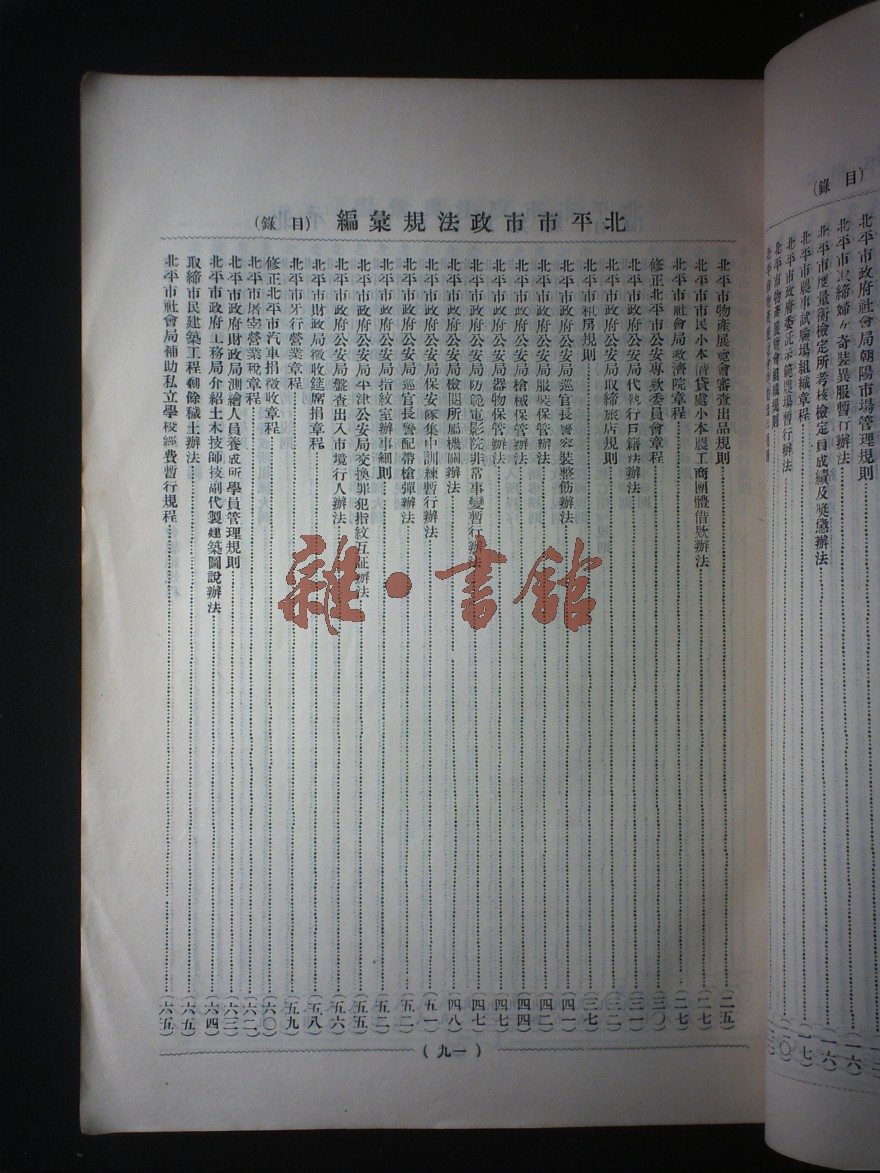 (目錄)
北平市政府社會局朝陽市場管理規則
北平市取締婦女奇裝異服暫行辦法
北平市度量衡檢定所考核檢定員成績及獎懲辦法
北平市農事試驗場組織章程
北平市政府委託示範農場暫行辦法
北平市物產展覽會組織規則
北平市市政法規彙編 (目錄)
北平市物產展覽會審查出品規則(二五)
北平市市民小本借貸處小本農工商團體借款辦法(二七)
北平市社會局救濟院章程(二七)
修正北平市公安專款委員會章程(三〇)
北平市政府公安局代執行戶籍法辦法(三一)
北平市政府公安局取締旅店規則(三二)
北平市租房規則(三七)
北平市政府公安局巡官長警容裝整飭辦法(四一)
北平市政府公安局服裝保管辦法(四二)
北平市政府公安局槍械保管辦法(四四)
北平市政府公安局器物保管辦法(四七)
北平市政府公安局防範電影院非常事變暫行辦法(四七)
北平市政府公安局檢閱所屬機關辦法(四八)
北平市政府公安局保安隊集中訓練暫行辦法(五一)
北平市政府公安局巡官長警配帶槍彈辦法(五二)
北平市政府公安局指紋室辦事細則(五二)
北平市政府公安局平津公安局交換罪犯指紋互証辦法(五五)
北平市政府公安局盤查出入市境行人辦法(五六)
北平市財政局徵收筵席捐章程(五八)
北平市牙行營業章程(五九)
修正北平市汽車捐徵收章程(六〇)
北平市屠宰營業稅章程(六二)
北平市政府財政局測繪人員養成所學員管理規則(六三)
北平市政府工務局介紹土木技師技副代製建築圖說辦法(六四)
取締市民建築工程剩餘穢土辦法(六五)
北平市社會局補助私立學校經費暫行規程(六五)
(一九)
雜·書館